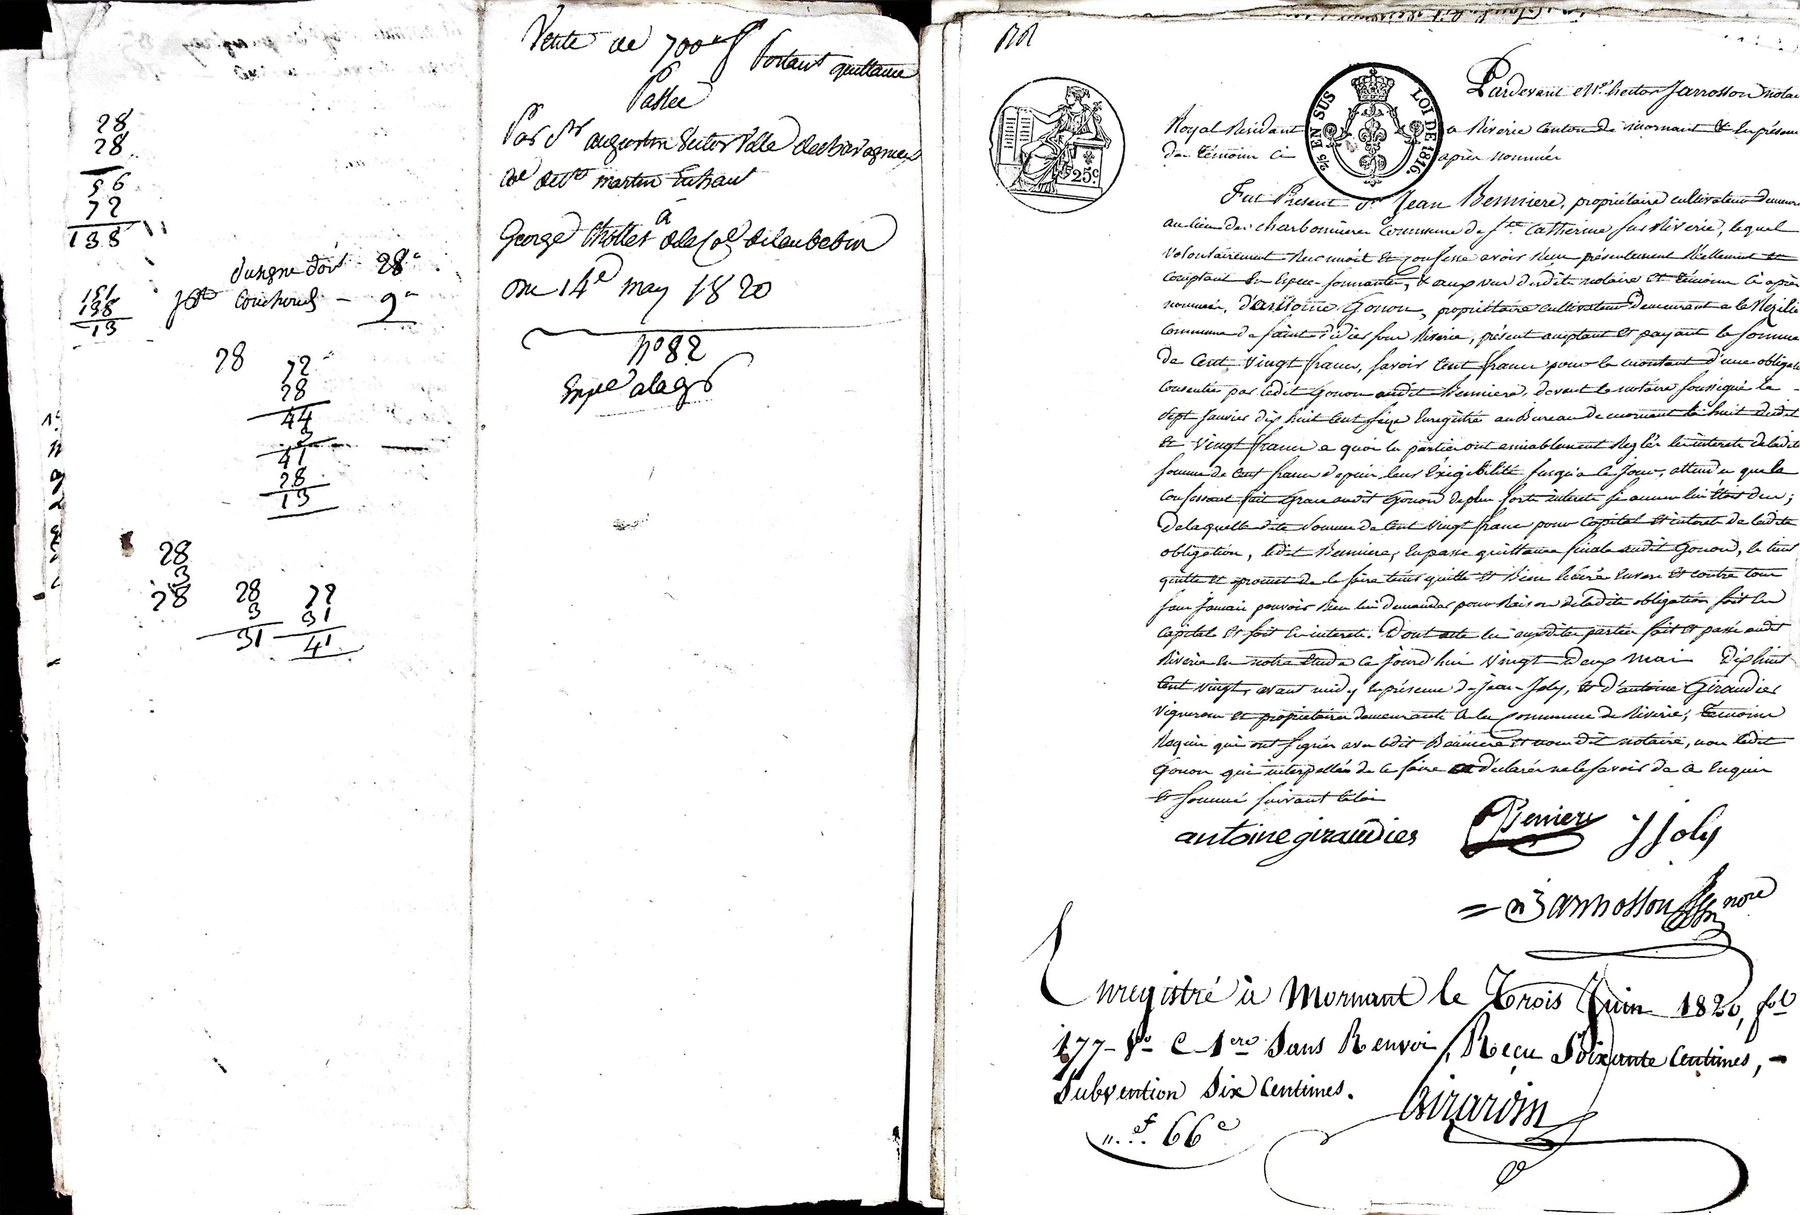 28
28
56
72
138
151
138
13
28
9
28 72
28
44
3
41
28
13
28
3
28 28 72
3 31
31 41
Vente de 700 f portant quittance
Passée
Par Sr augustin
de St martin Enhaut
à
George
Du 14e may 1820
n° 82
Expe
Pardevant Me hector Jarrosson notai
Royal Résidant a Riverie Canton de mornant & En présen
des témoins Ci après nommés
2/10 EN SUS LOI DE 1816.
25c
Fut Présent Sr Jean Bennière, propriétaire cultivateur demeur
au lieu des charbonnières Commune de Ste Catherine sur Riverie, lequel
volontairement Reconnoit et confesse avoir Reçu présentement Réellement et
comptant En Espèces sonnantes, & aux vus desdits notaire et témoins Ci après
nommés, d'antoine Gonon, propriétaire cultivateur Demeurant a
Commune de saint didier sous Riverie, présent acceptant et payant la somme
de Cent vingt francs, savoir Cent francs pour le montant d'une obligati
Consentie par ledit Gonon audit Bennière, devant le notaire soussigné le
Sept Janvier dix huit Cent seize Enregistré au Bureau de mornant le huit dudit
et vingt francs a quoi les parties ont amiablement Réglés les intérets de ladite
somme de Cent francs depuis leur Exigibilité jusqu'a Ce jour, attendu que le
Confessant fait grace audit Gonon de plus forts intérets si aucuns lui étoit dus;
De laquelle dite Somme de Cent vingt francs pour Capital et intérets de ladite
obligation, ledit Bennière, En passe quittance finale audit Gonon, le tient
quitte et promet de le faire tenir quitte et Bien libéré Envers et contre tous
sans Jamais pouvoir Rien lui demander pour Raison de ladite obligation soit En
Capital et soit En intérets. Dont acte les susdites parties fait et passé audit
Riverie En notre étude Ce jourd'hui vingt deux mai Dix huit
Cent vingt, avant midy En présence de Jean Joly, & d'antoine Giraudier
vignerons et propriétaires demeurants En la Commune de Riverie, témoins
Requis qui ont signés avec ledit Bennière et nous dit notaire, non ledit
Gonon qui interpellés de le faire a déclaré ne le savoir de Ce Enquis
et sommé suivant la loi
antoine giraudier Bennière J Joly
Jarrosson nore
Enregistré à Mornant le Trois Juin 1820, fol
177 Vo C 1ere Sans Renvoi, Reçu Soixante Centimes,
Subvention Six Centimes.
Girardin
" f 66 c